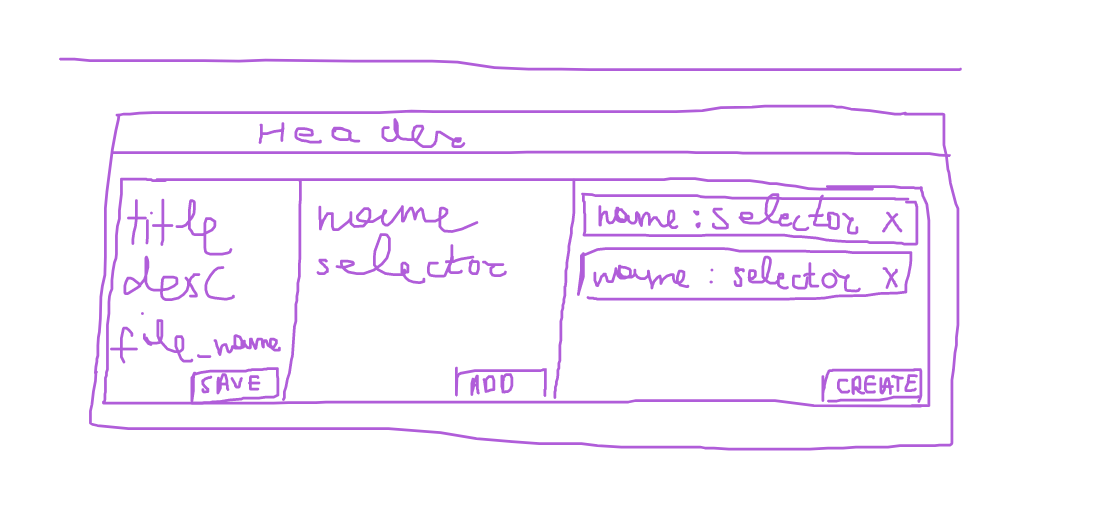 Header
title
desc
file_name
SAVE
name
selector
ADD
name : selector X
name : selector X
CREATE